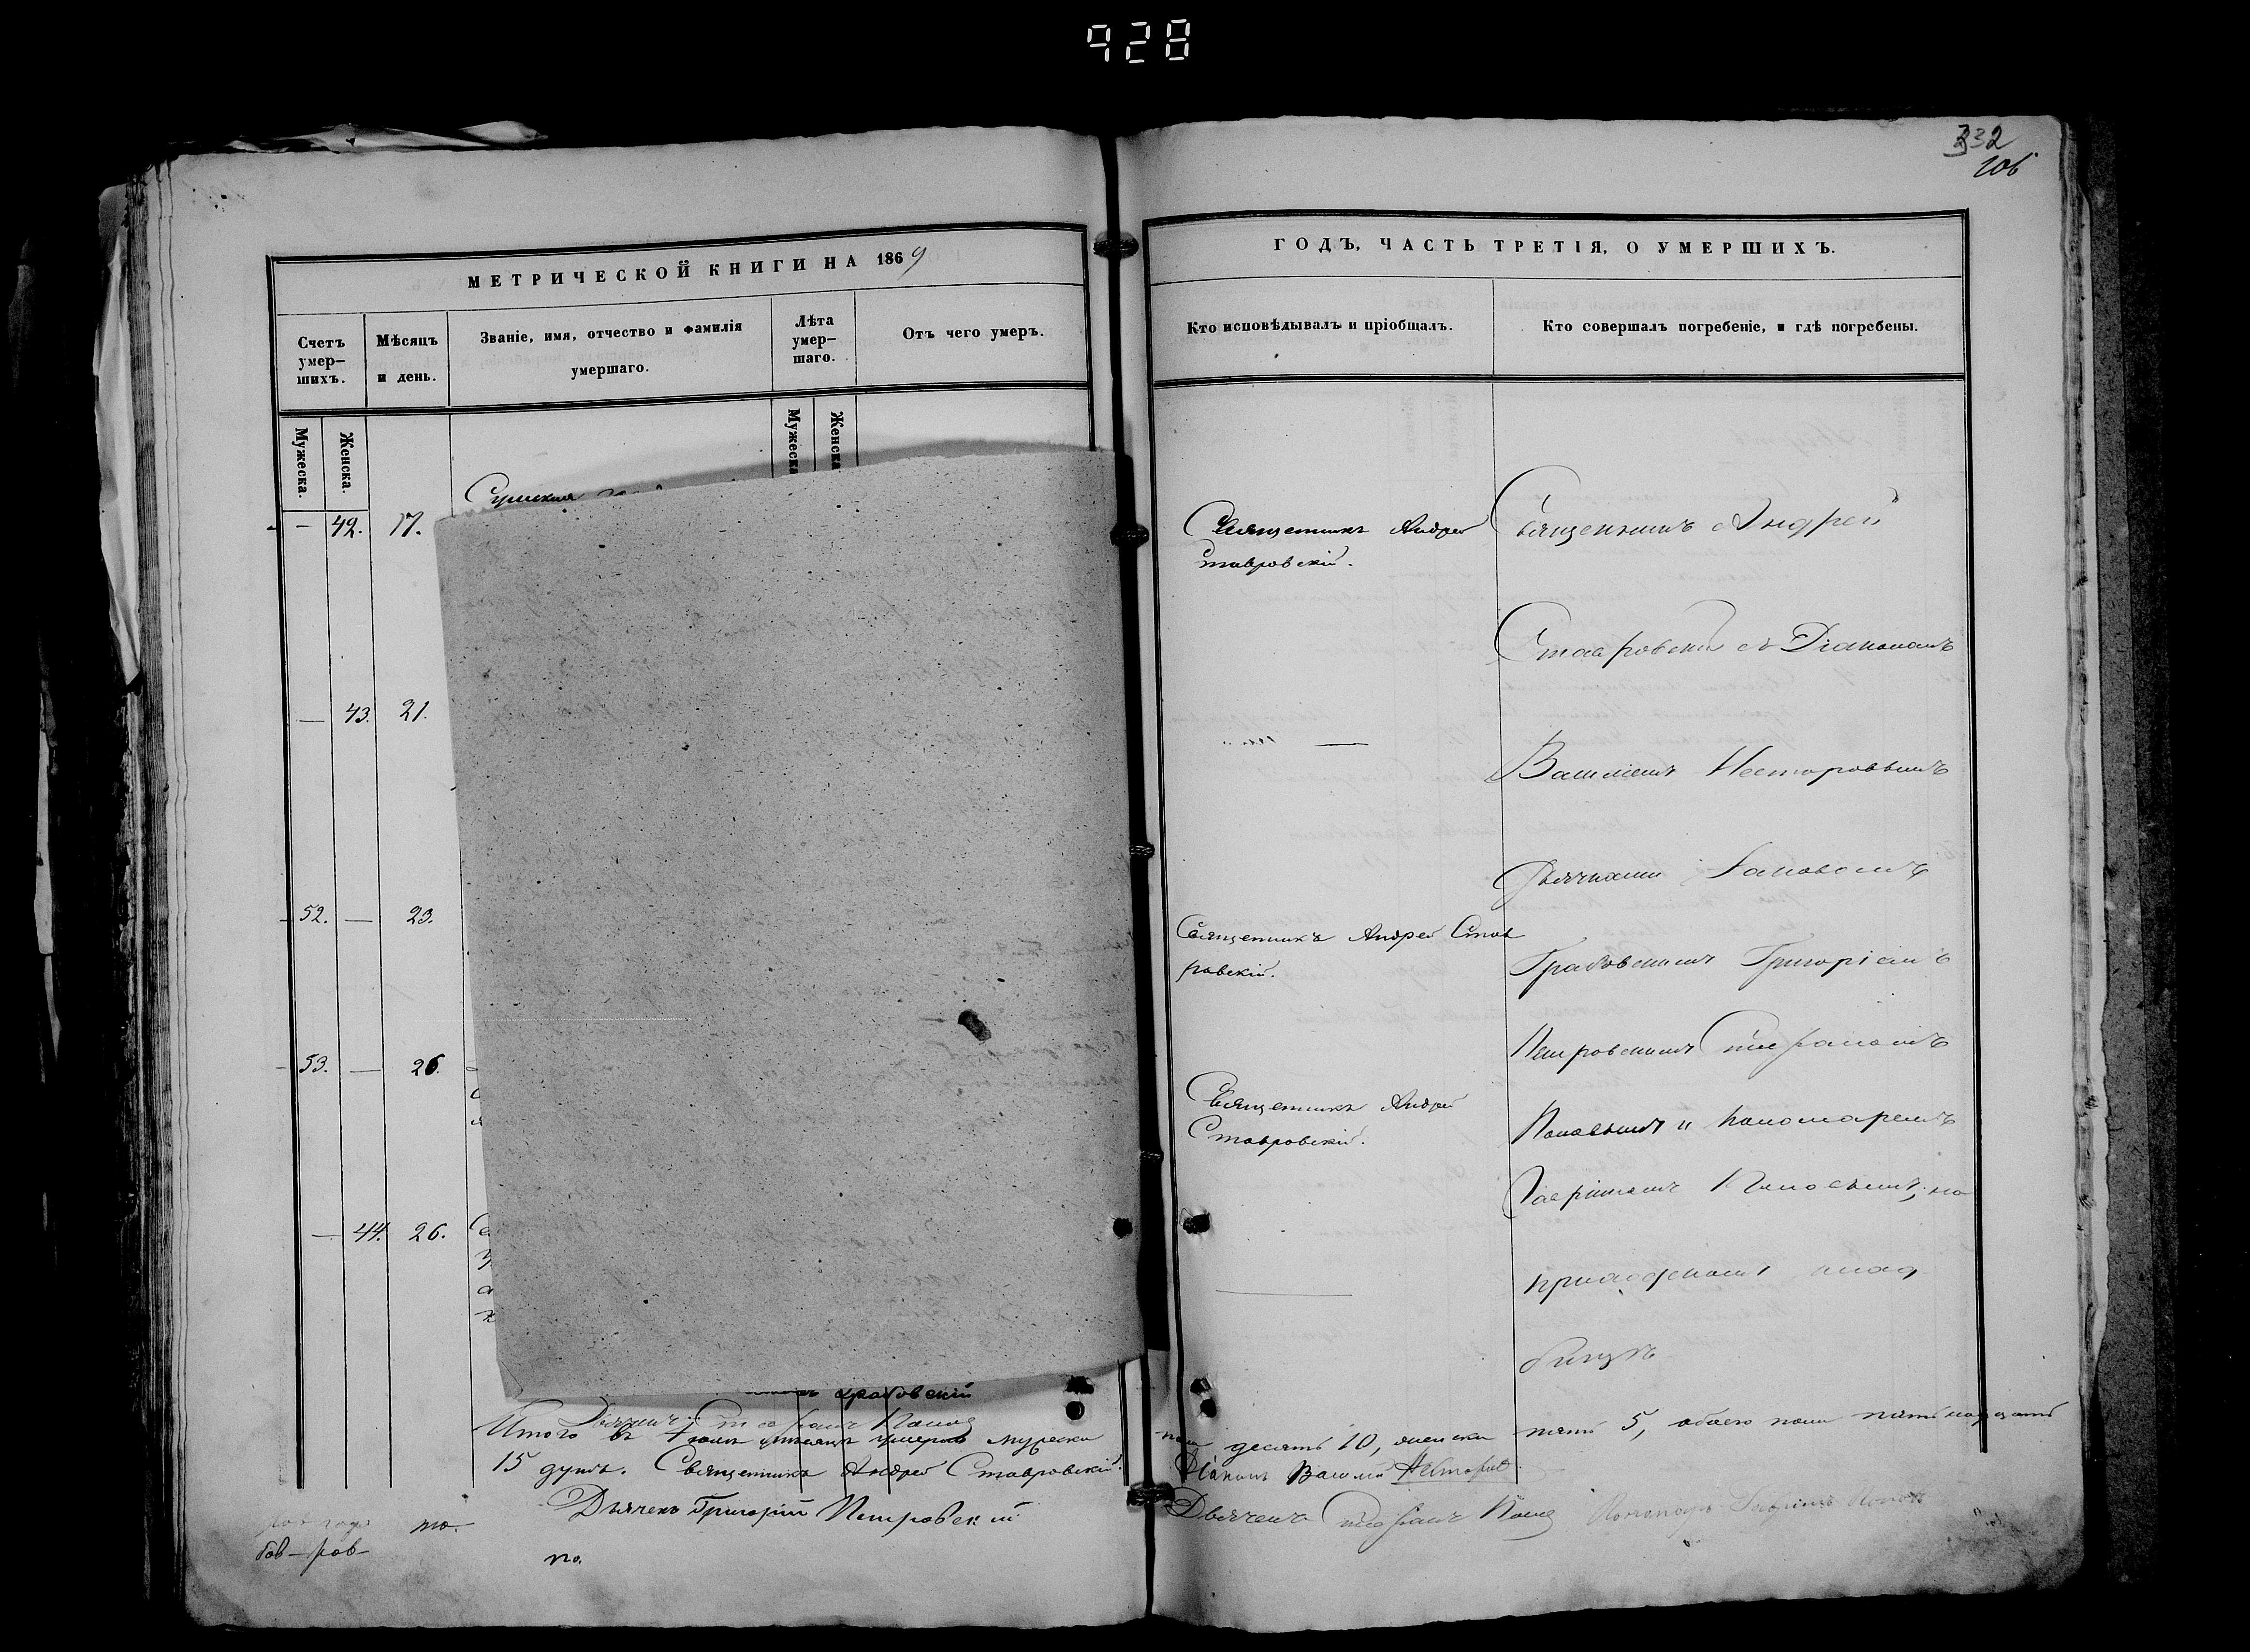 928
332
106
МЕТРИЧЕСКОЙ КНИГИ НА 1869
Счетъ умер-
шихъ.
Мѣсяцъ
и день.
Званіе, имя, отчество и фамилія
умершаго.
Лѣта
умер-
шаго.
Отъ чего умеръ.
Мужеска.
Женска.
Мужеска
Женска
— 42. 17.
— 43. 21.
52. — 23.
53. — 26.
— 44. 26.
Грабовскій
Дьячекъ Стефанъ Поповъ
Итого въ мѣсяцѣ умерло мужеска
15 душъ. Священникъ Андрей Ставровскій.
Дьячекъ Григорій Петровскій
ГОДЪ, ЧАСТЬ ТРЕТІЯ, О УМЕРШИХЪ.
Кто исповѣдывалъ и пріобщалъ.
Кто совершалъ погребеніе, и гдѣ погребены.
Священникъ Андрей
Ставровскій.
Священникъ Андрей Став
ровскій.
Священникъ Андрей
Ставровскій.
Священникъ Андрей
Ставровскій съ Діакономъ
Василіемъ Несторовымъ
Дьячками Іаковомъ
Грабовскимъ Григоріемъ
Петровскимъ Стефаномъ
Поповымъ и Пономаремъ
Гавріиломъ Поповымъ, на
приходскомъ клад
бищѣ
пола десять 10, женска пять 5, обоего пола пятнадцать
Діаконъ Василій
Дьячекъ Стефанъ Пономарь Гавріилъ Поповъ